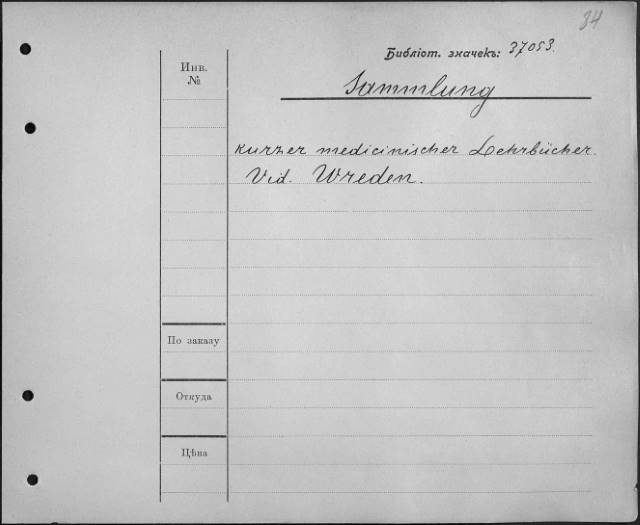 34
Библіот. значекъ: 37053.
Инв.
№
Sammlung
kurzer medicinischer Lehrbücher.
Vid. Wreden.
По заказу
Откуда
Цѣна